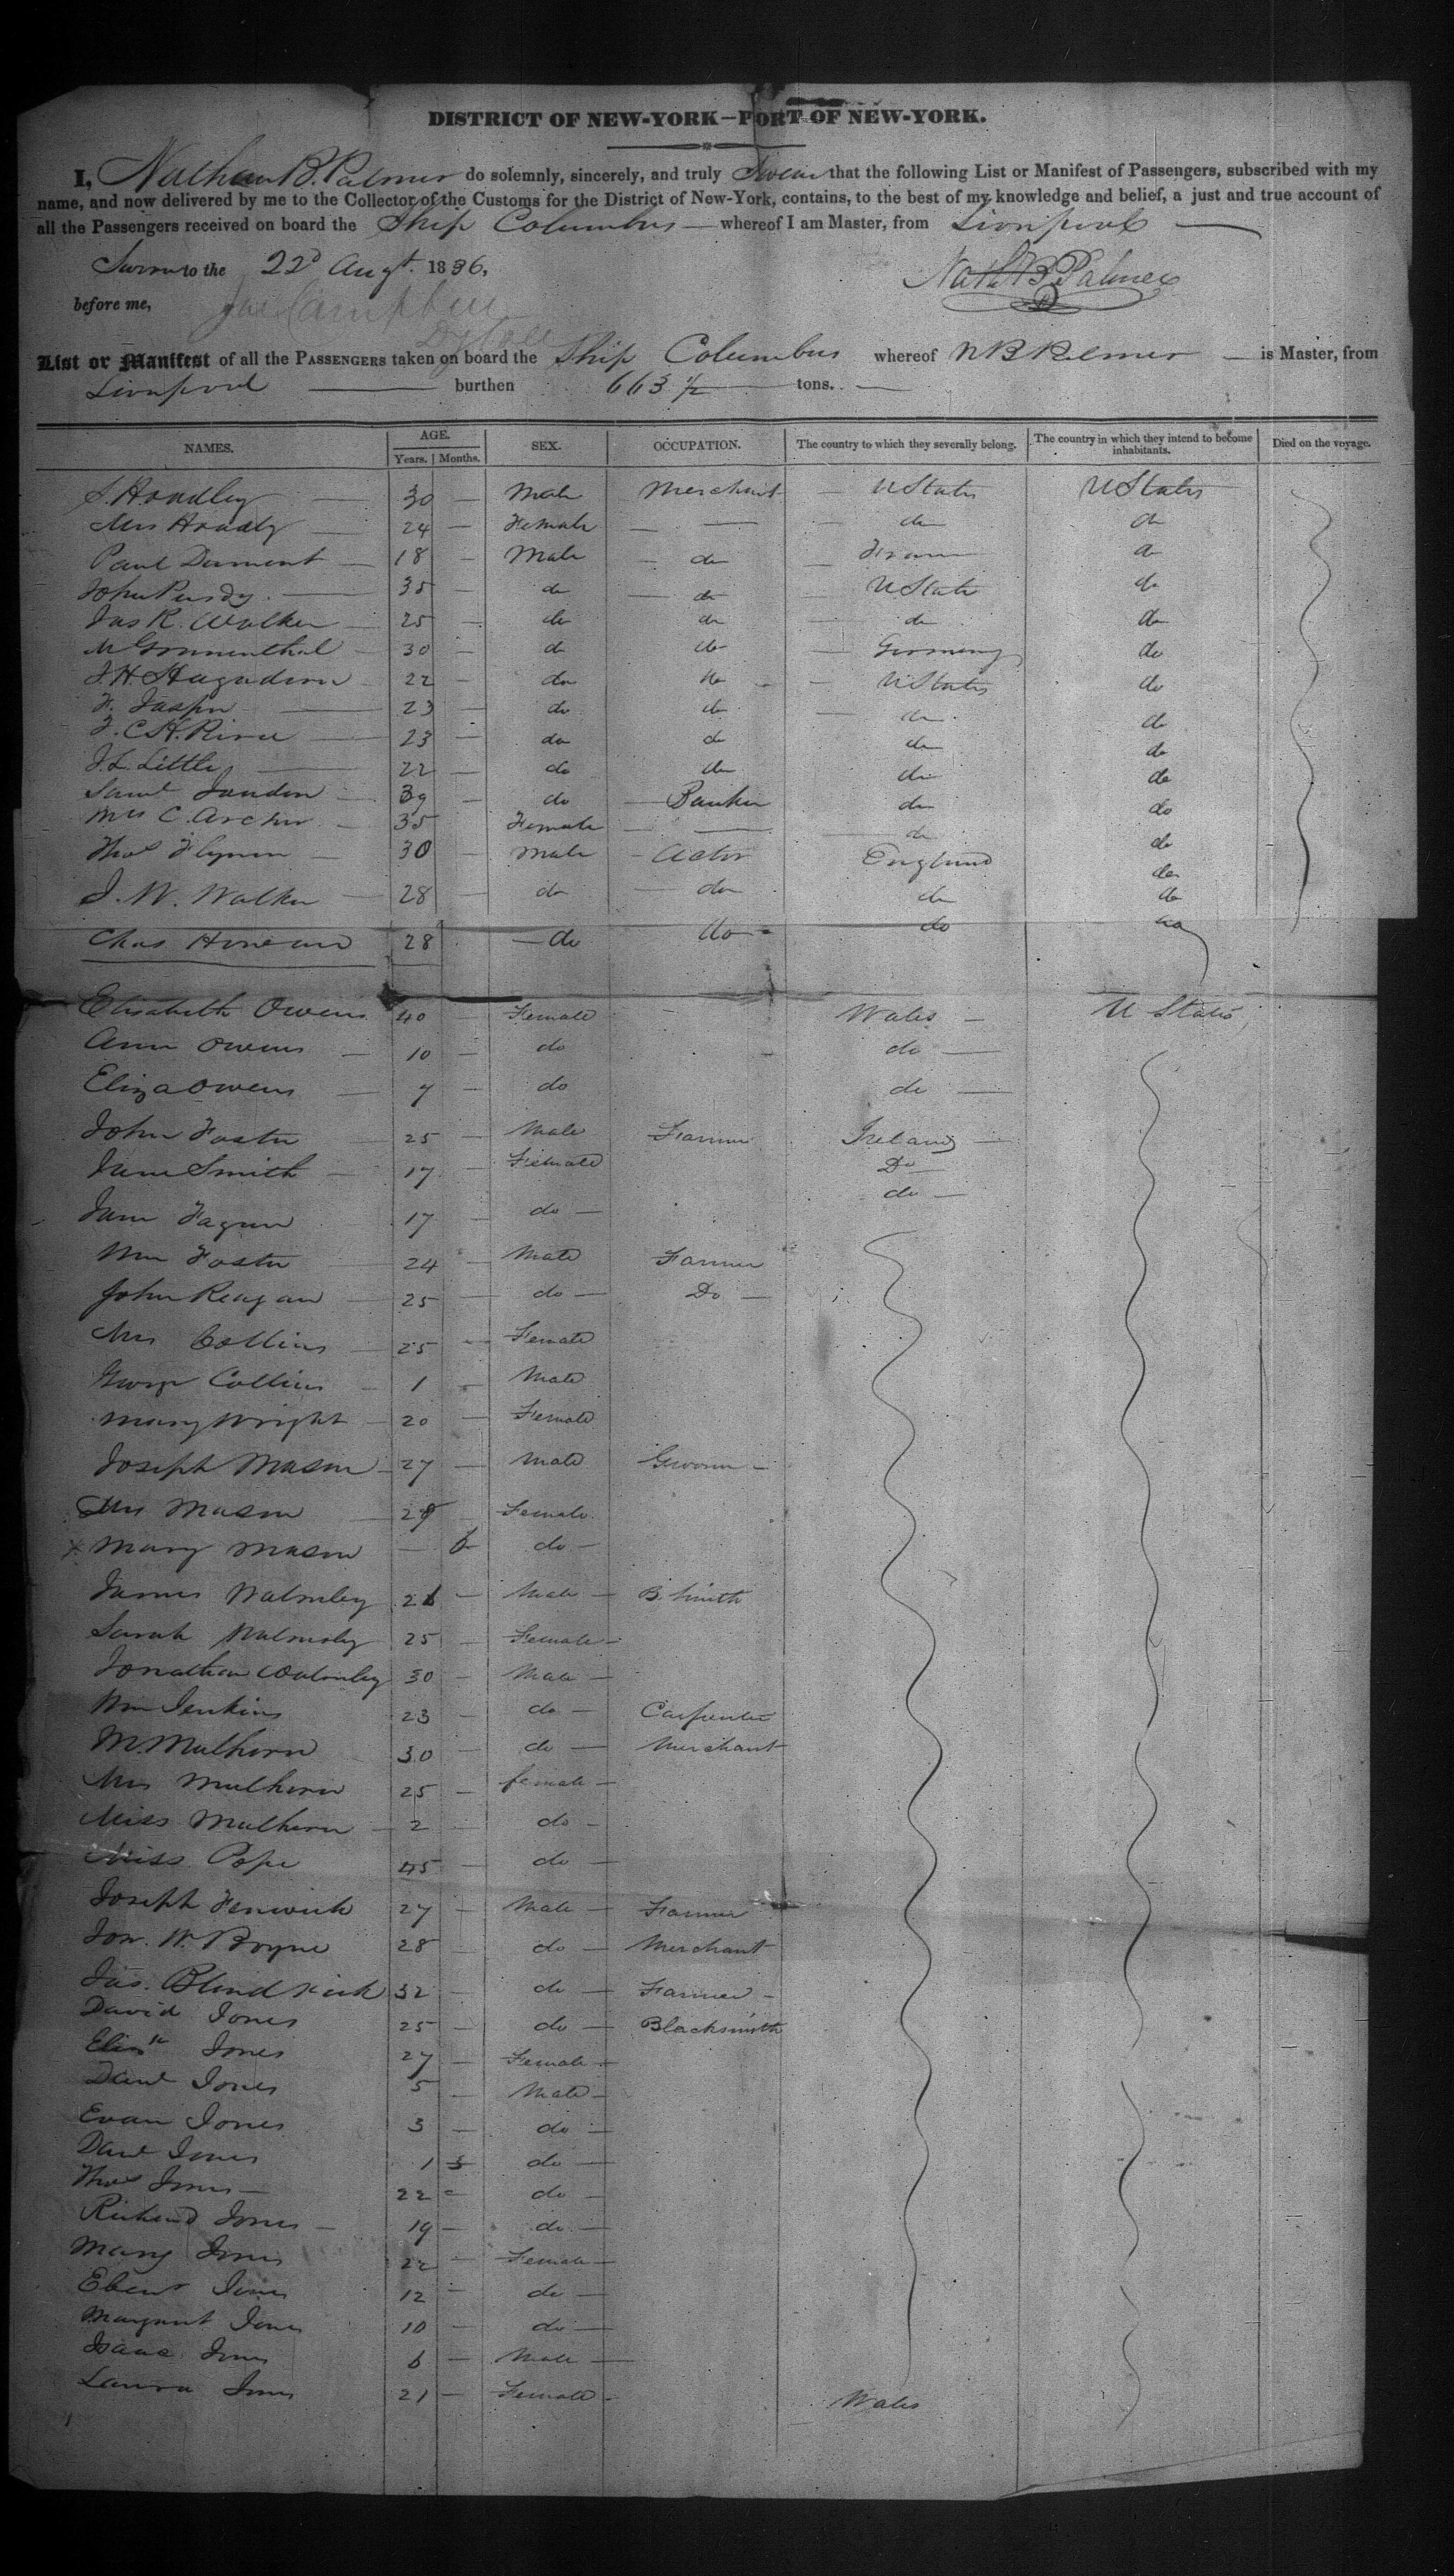 DISTRICT OF NEW-YORK—PORT OF NEW-YORK.
I, Nathan B. Palmer do solemnly, sincerely, and truly Swear that the following List or Manifest of Passengers, subscribed with my
name, and now delivered by me to the Collector of the Customs for the District of New-York, contains, to the best of my knowledge and belief, a just and true account of
all the Passengers received on board the Ship Columbus — whereof I am Master, from Liverpool —
Sworn to the 22d Augt. 1836, Nathl B. Palmer
before me,
List or Manifest of all the PASSENGERS taken on board the Ship Columbus whereof N B Palmer — is Master, from
Liverpool — burthen 663 1/2 — tons. —
NAMES. AGE. Years. Months. SEX. OCCUPATION. The country to which they severally belong. The country in which they intend to become inhabitants. Died on the voyage.
30 — Male Merchant — U States U States
Mrs 24 — Female — — do do
Paul Dumont — 18 — Male — do France do
John Purdy. — 35 do — do U States do
Jas R. Walker — 25 — do do — do do
30 — do do — Germany do
22 — do do — U States do
23 do do — do do
23 — do do do do
J. L. Little — 22 — do do do do
Saml Jaudon — 39 — do — Banker do do
Mrs C. Archer — 35 Female — — do do
Thos Flynn — 30 — Male — Actor England do
J. W. Walker — 28 — do — do do do
Chas 28 — do do — do do
Elisabeth Owens 40 — Female Wales — U States
Ann Owens — 10 — do do —
Eliza Owens — 7 — do do —
John Foster — 25 — Male Farmer Ireland —
Jane Smith — 17 Female Do
Jane Fagan 17 — do — do —
Wm Foster 24 — Male Farmer
John Reagan — 25 — do — Do —
Mrs Collins — 25 — Female
George Collins — 1 — Male
Mary Wright — 20 — Female
Joseph Mason — 27 — Male Groom —
Mrs Mason — Female
x Mary Mason — 6 do —
James Walmsley — Male — B. Smith
Sarah Walmsley 25 — Female —
Jonathan Walmsley 30 — Male —
Wm Jenkins 23 — do — Carpenter
M. Mulhern 30 — do — Merchant
Mrs Mulhern 25 — female —
Miss Mulhern — 2 — do —
Miss Pope 45 — do —
Joseph Fenwick 27 — Male — Farmer
28 — do — Merchant
Jas. 32 — do — Farmer —
David Jones 25 — do — Blacksmith
Elizth Jones 27 — Female —
Danl Jones 5 — Male —
Evan Jones 3 — do —
Jones 1 3 do —
Thos Jones — 22 — do —
Richard Jones — 19 — do —
Mary Jones 22 — Female —
Jones 12 — do —
Margaret Jones 10 — do —
Isaac Jones 6 — Male —
Laura Jones 21 — Female — Wales